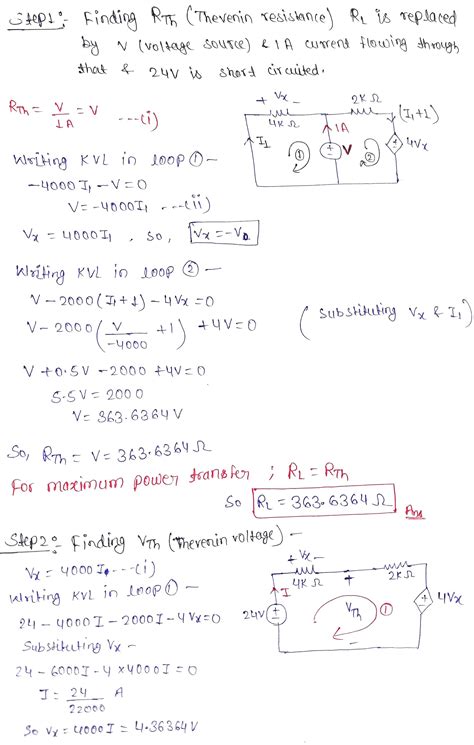 Step1:- Finding RTh (Thevenin resistance) RL is replaced
by V (voltage source) & 1A current flowing through
that & 24V is short circuited.
RTh = V/1A = V ---(i)
+ Vx -
4KΩ
2KΩ
I1
1A
(I1+1)
①
+
-
V
②
+
-
4Vx
Writing KVL in loop ① -
-4000I1 - V = 0
V = -4000I1 ---(ii)
Vx = 4000I1 . So, Vx = -V
Writing KVL in loop ② -
V - 2000(I1+1) - 4Vx = 0
V - 2000(V/-4000 + 1) + 4V = 0 (Substituting Vx & I1)
V + 0.5V - 2000 + 4V = 0
5.5V = 2000
V = 363.6364V
So, RTh = V = 363.6364Ω
For maximum power transfer ; RL = RTh
So RL = 363.6364Ω Ans
Step2:- Finding VTh (Thevenin voltage) -
Vx = 4000I ---(i)
Writing KVL in loop ① -
24 - 4000I - 2000I - 4Vx = 0
Substituting Vx -
24 - 6000I - 4×4000I = 0
I = 24/22000 A
So Vx = 4000I = 4.36364V
+ Vx -
4KΩ
+
2KΩ
I
24V
+
-
VTh
①
+
-
4Vx
-